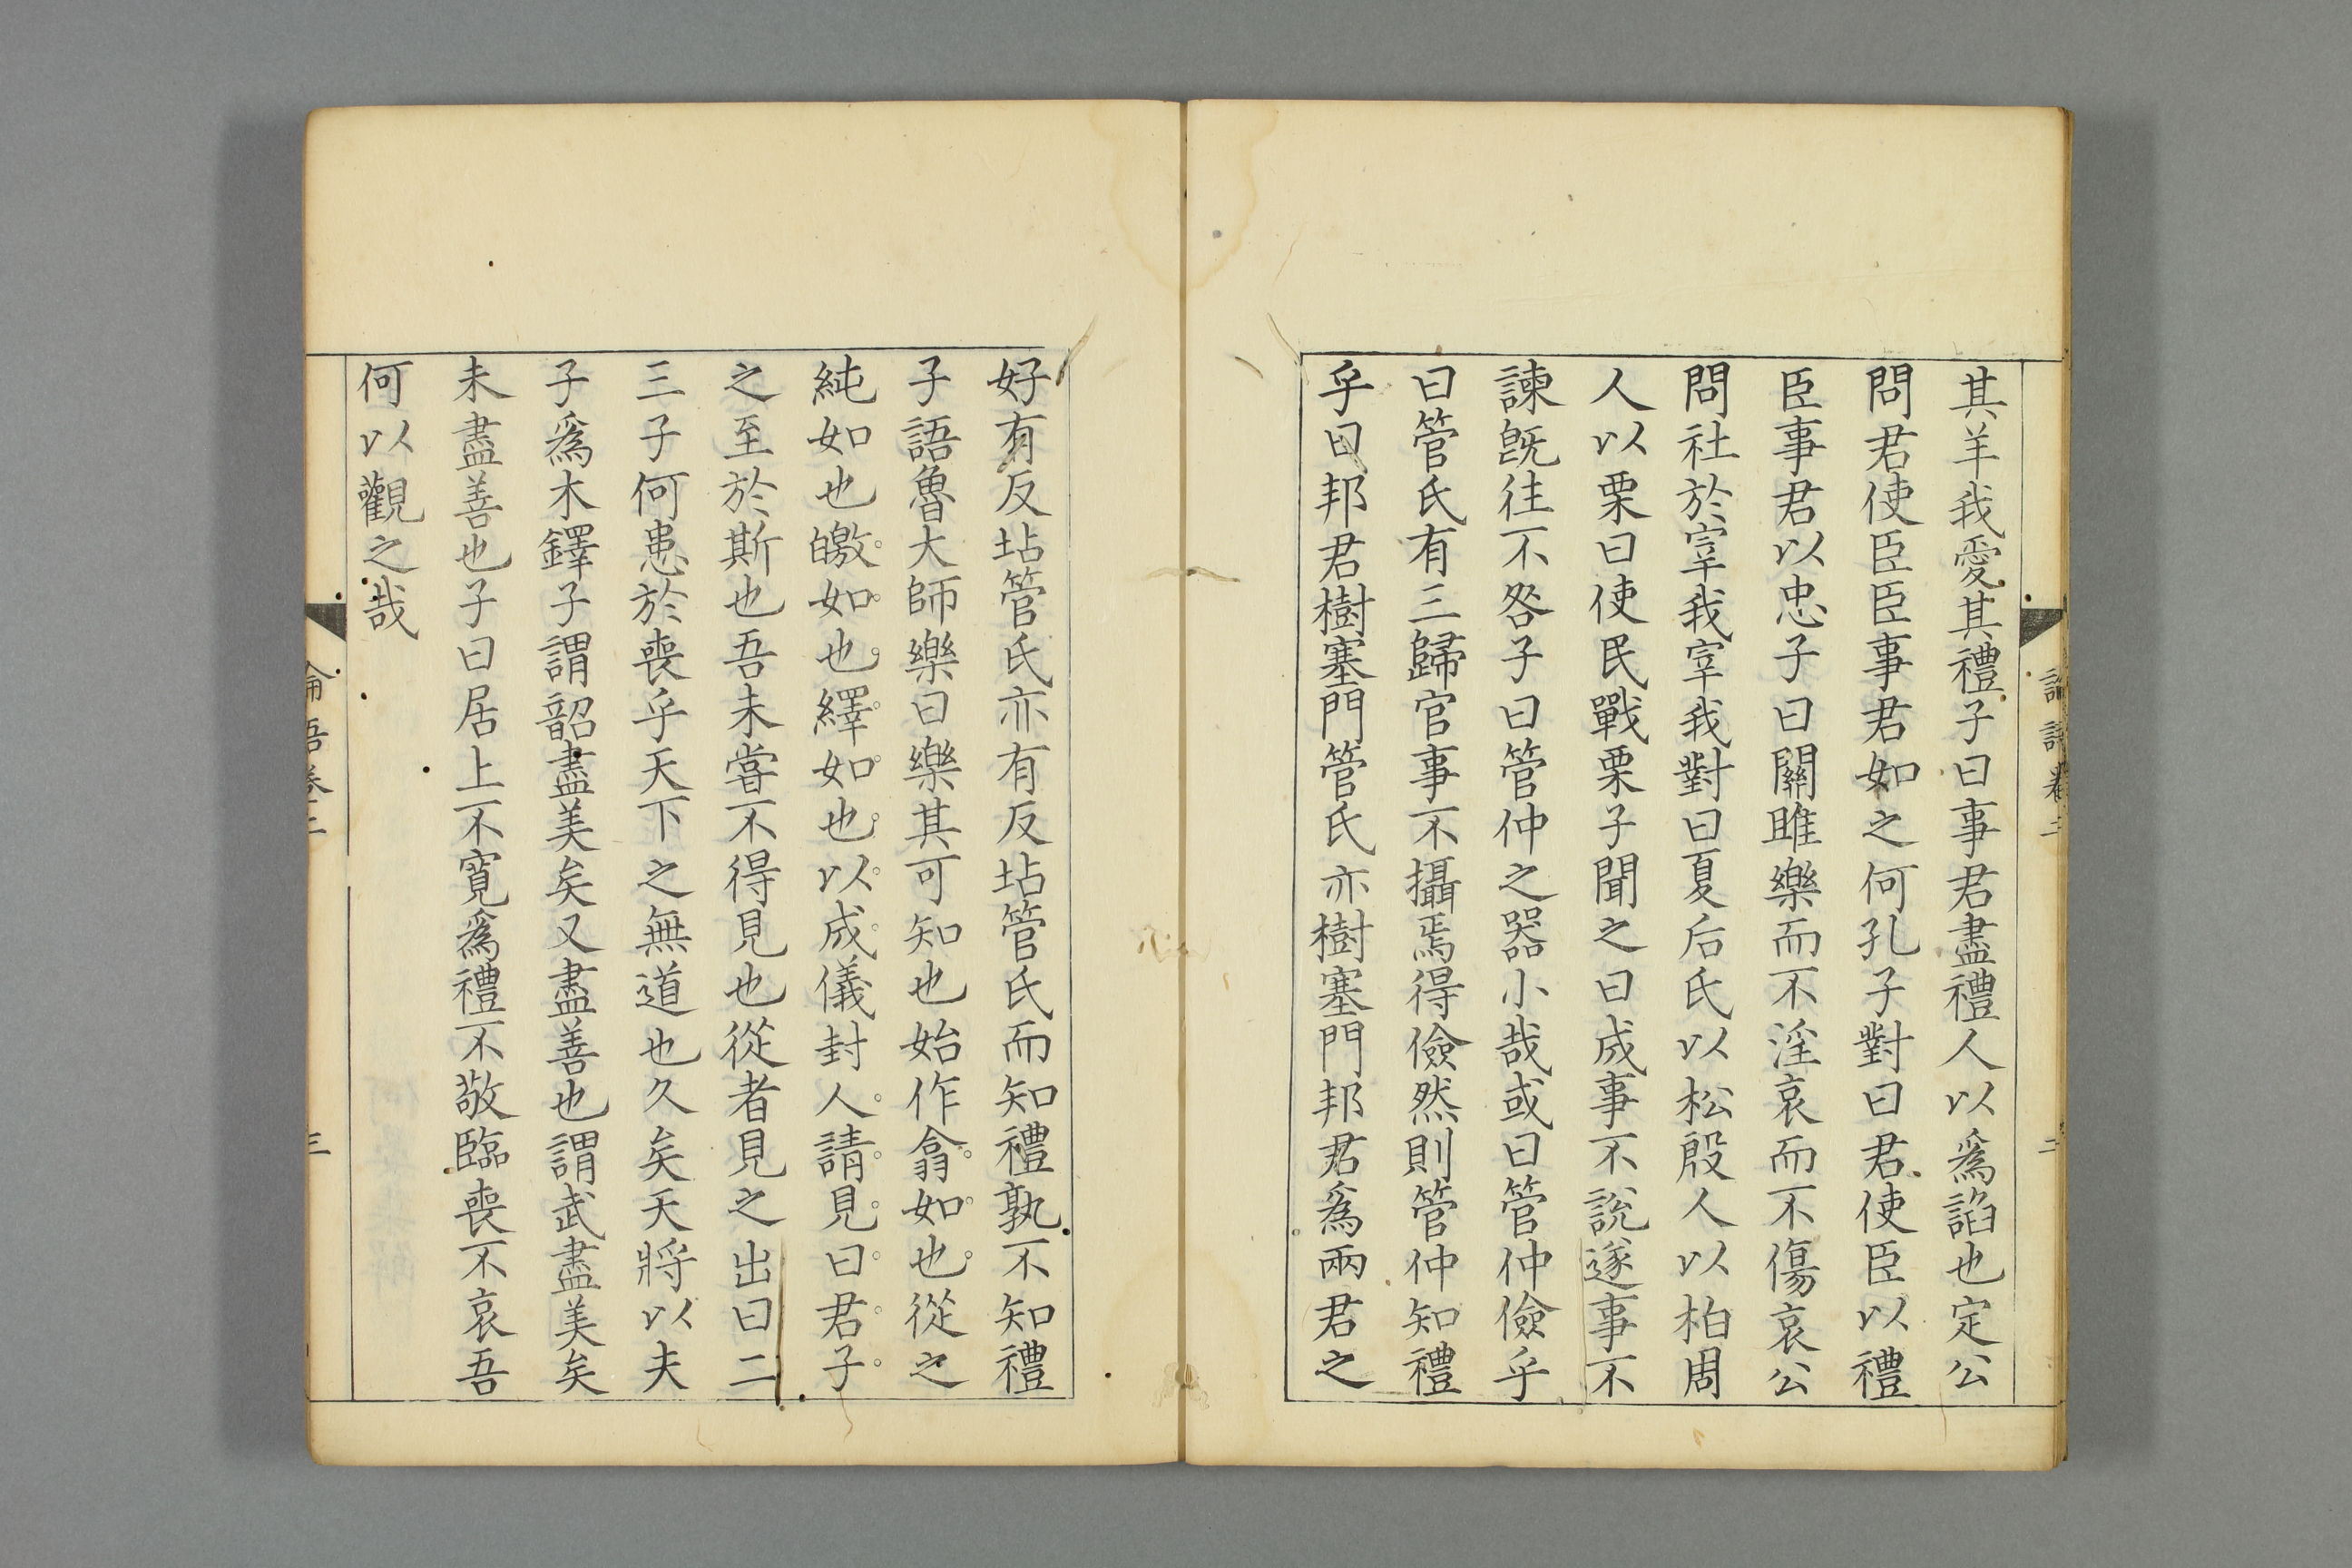 論語卷二 二
其羊我愛其禮子曰事君盡禮人以爲諂也定公
問君使臣臣事君如之何孔子對曰君使臣以禮
臣事君以忠子曰關雎樂而不淫哀而不傷哀公
問社於宰我宰我對曰夏后氏以松殷人以柏周
人以栗曰使民戰栗子聞之曰成事不說遂事不
諫既往不咎子曰管仲之器小哉或曰管仲儉乎
曰管氏有三歸官事不攝焉得儉然則管仲知禮
乎曰邦君樹塞門管氏亦樹塞門邦君爲兩君之
好有反坫管氏亦有反坫管氏而知禮孰不知禮
子語魯大師樂曰樂其可知也始作翕如也從之
純如也皦如也繹如也以成儀封人請見曰君子
之至於斯也吾未嘗不得見也從者見之出曰二
三子何患於喪乎天下之無道也久矣天將以夫
子爲木鐸子謂韶盡美矣又盡善也謂武盡美矣
未盡善也子曰居上不寬爲禮不敬臨喪不哀吾
何以觀之哉
論語卷二 三